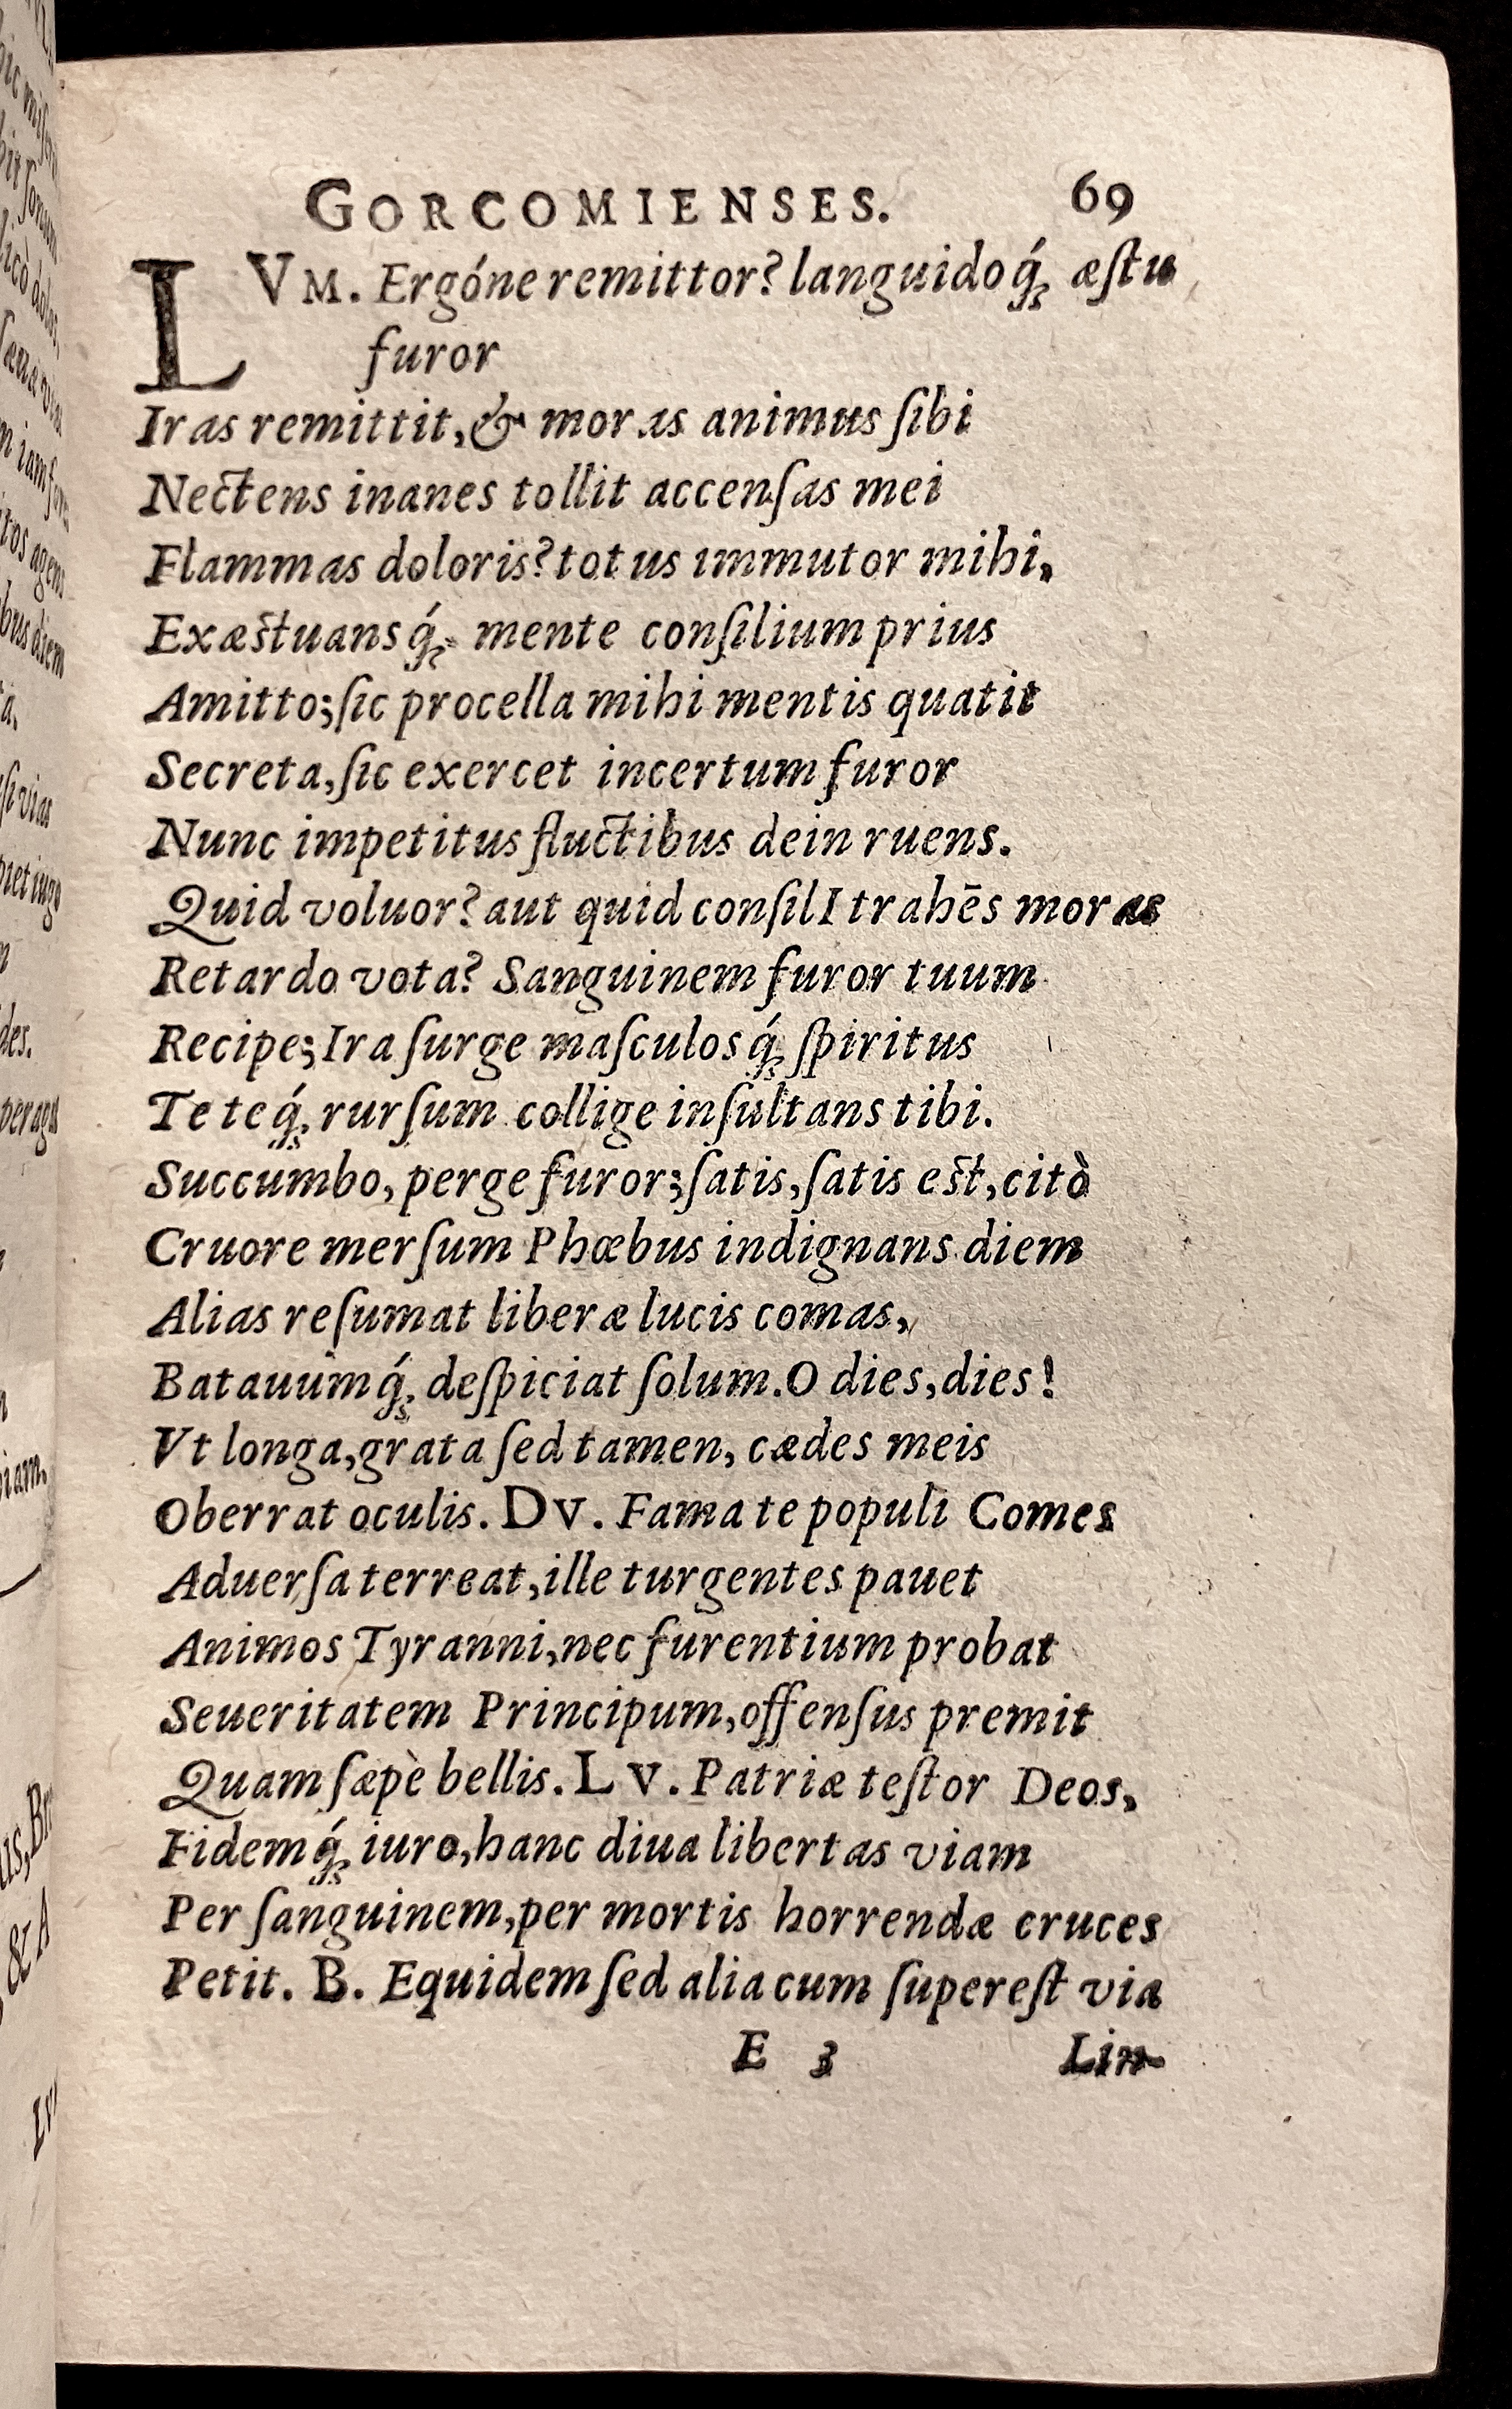 GORCOMIENSES. 69
LVM. Ergóne remittor? languidoq́; æſtu
furor
Iras remittit, & moras animus ſibi
Nectens inanes tollit accenſas mei
Flammas doloris? totus immutor mihi,
Exæstuansq́; mente conſilium prius
Amitto; ſic procella mihi mentis quatit
Secreta, ſic exercet incertum furor
Nunc impetitus fluctibus dein ruens.
Quid voluor? aut quid conſilI trahēs moras
Retardo vota? Sanguinem furor tuum
Recipe; Ira ſurge maſculosq́; ſpiritus
Te teq́; rurſum collige inſultans tibi.
Succumbo, perge furor; ſatis, ſatis est, citò
Cruore merſum Phœbus indignans diem
Alias reſumat liberæ lucis comas,
Batauûmq́; deſpiciat ſolum. O dies, dies!
Vt longa, grata ſed tamen, cædes meis
Oberrat oculis. DV. Fama te populi Comes
Aduerſa terreat, ille turgentes pauet
Animos Tyranni, nec furentium probat
Seueritatem Principum, offenſus premit
Quam ſæpè bellis. LV. Patriæ teſtor Deos,
Fidemq́; iuro, hanc diua libertas viam
Per ſanguinem, per mortis horrendæ cruces
Petit. B. Equidem ſed alia cum ſupereſt via
E 3 Lin-